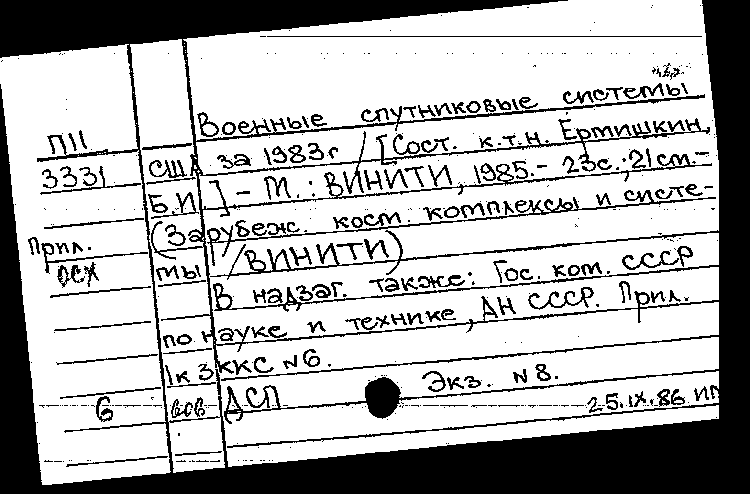 Военные спутниковые системы
П11
США за 1983г / [Сост. к.т.н. Ёртишкин,
3331
Б.И.] - М.: ВИНИТИ, 1985.- 23с.; 21 см.-
(Зарубеж. косм. комплексы и систе-
Прил.
мы / ВИНИТИ)
ОСХ
В надзаг. также: Гос. ком. СССР
по науке и технике, АН СССР. Прил.
1к ЗККС №6.
Экз. №8.
6
ДСП
25.IX.86 ИП